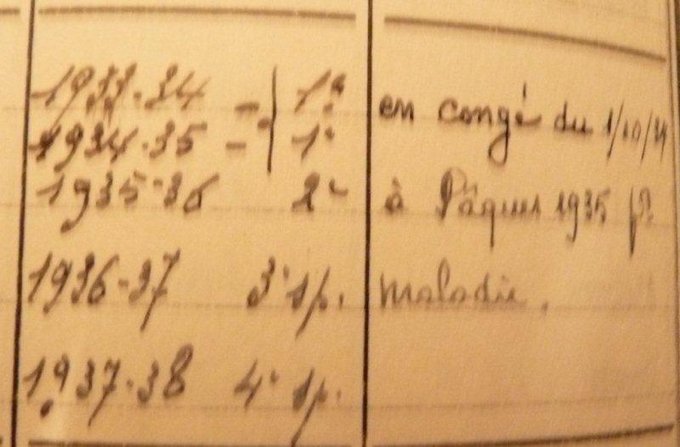 1933-34 - 1e en congé du 1/10/34
1934-35 - 1e
1935-36 2e à Pâques 1935 pr
1936-37 3e sp. maladie.
1937-38 4e sp.